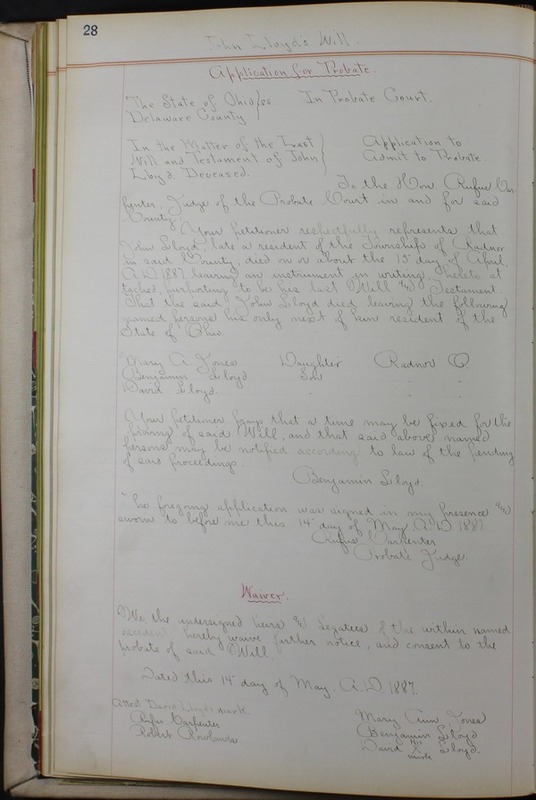 28
John Lloyd's Will.
Application for Probate.
The State of Ohio } ss In Probate Court.
Delaware County
In the Matter of the Last } Application to
Will and Testament of John } Admit to Probate.
Lloyd, Deceased.
To the Hon. Rufus Car
penter, Judge of the Probate Court in and for said
County:
Your petitioner respectfully represents that
John Lloyd, late a resident of the Township of Radnor
in said County, died on or about the 15 day of April
A.D. 1887, leaving an instrument in writing, thereto at
tached, purporting to be his last Will & Testament.
That the said John Lloyd died leaving the following
named persons his only next of kin resident of the
State of Ohio
Mary A. Jones Daughter Radnor O
Benjamin Lloyd Son " "
David Lloyd. " " "
Your petitioner prays that a time may be fixed for the
proving of said Will, and that said above named
persons may be notified according to law of the pending
of said proceedings.
Benjamin Lloyd
The foregoing application was signed in my presence &
sworn to before me this 14 day of May A.D. 1887
Rufus Carpenter
Probate Judge.
Waiver.
We, the undersigned heirs & Legatees of the within named
hereby waive further notice, and consent to the
probate of said Will.
Dated this 14 day of May. A.D. 1887.
Attest David Lloyd's mark.
Rufus Carpenter Mary Ann Jones
Robert Rowlands Benjamin Lloyd
David his X mark Lloyd.